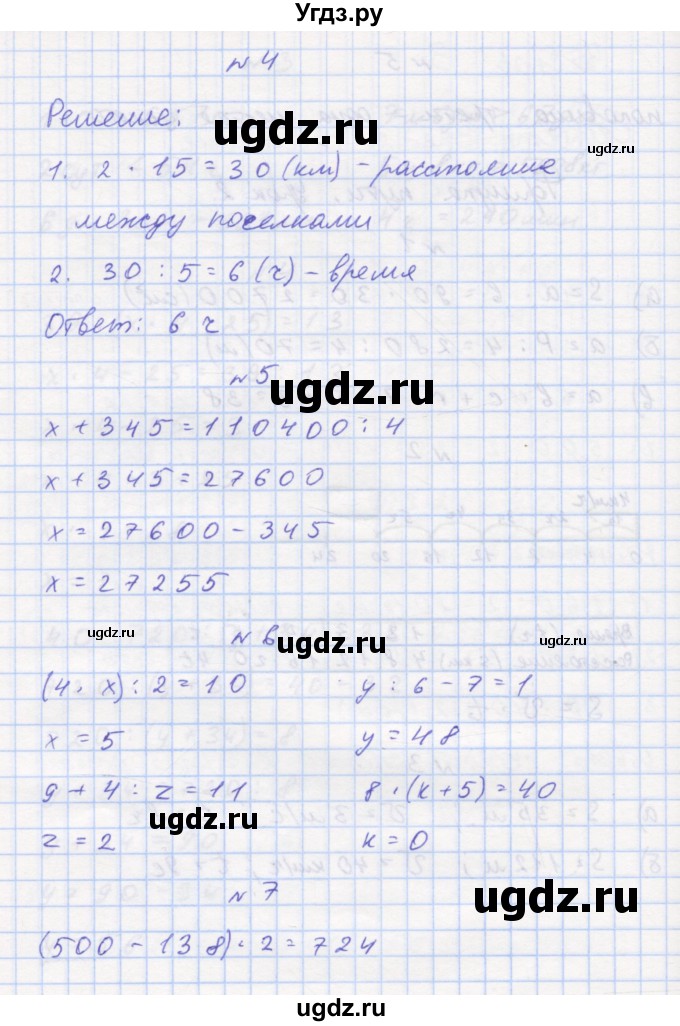 Угдз.ру
№ 4
Решение:
1. 2 · 15 = 30 (км) – расстояние
между поселками
2. 30 : 5 = 6 (ч) – время
Ответ: 6 ч
№ 5
x + 345 = 110400 : 4
x + 345 = 27600
x = 27600 – 345
x = 27255
№ 6
(4 · x) : 2 = 10    y : 6 – 7 = 1
x = 5    y = 48
9 + 4 : z = 11    8 · (k + 5) = 40
z = 2    k = 0
№ 7
(500 – 138) · 2 = 724
ugdz.ru
ugdz.ru
ugdz.ru
ugdz.ru
ugdz.ru
ugdz.ru
ugdz.ru
ugdz.ru
ugdz.ru